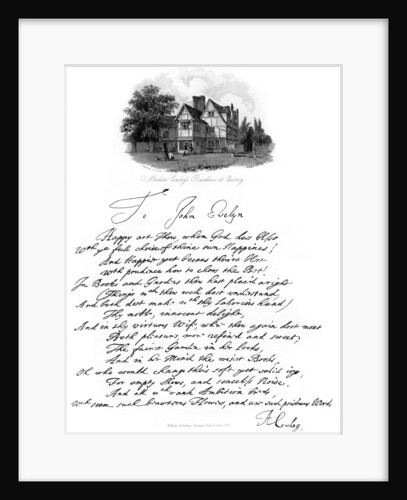 Abraham Cowley's Residence at Chertsey
To John Evelyn
Happy art Thou, whom God does bless
With ye full choice of thine own Happiness!
And Happier yet because thou'rt blest
With prudence how to chose the Best!
In Books and Gardens thou hast plac'd aright
(Things wch thou well dost understand
And both dost make with thy laborious hand)
Thy noble, innocent delight,
And in thy virtuous Wife, where thou again dost meet
Both pleasures more refin'd and sweet;
The fairest Garden in her Looks,
And in her Mind the wisest Books,
Oh who would change these soft, yet solid joys,
For empty Shows, and senceless Noise,
And all wch rank Ambition breeds,
Wch seem such beauteous Flowers, and are such poisonous Weeds
ACowley